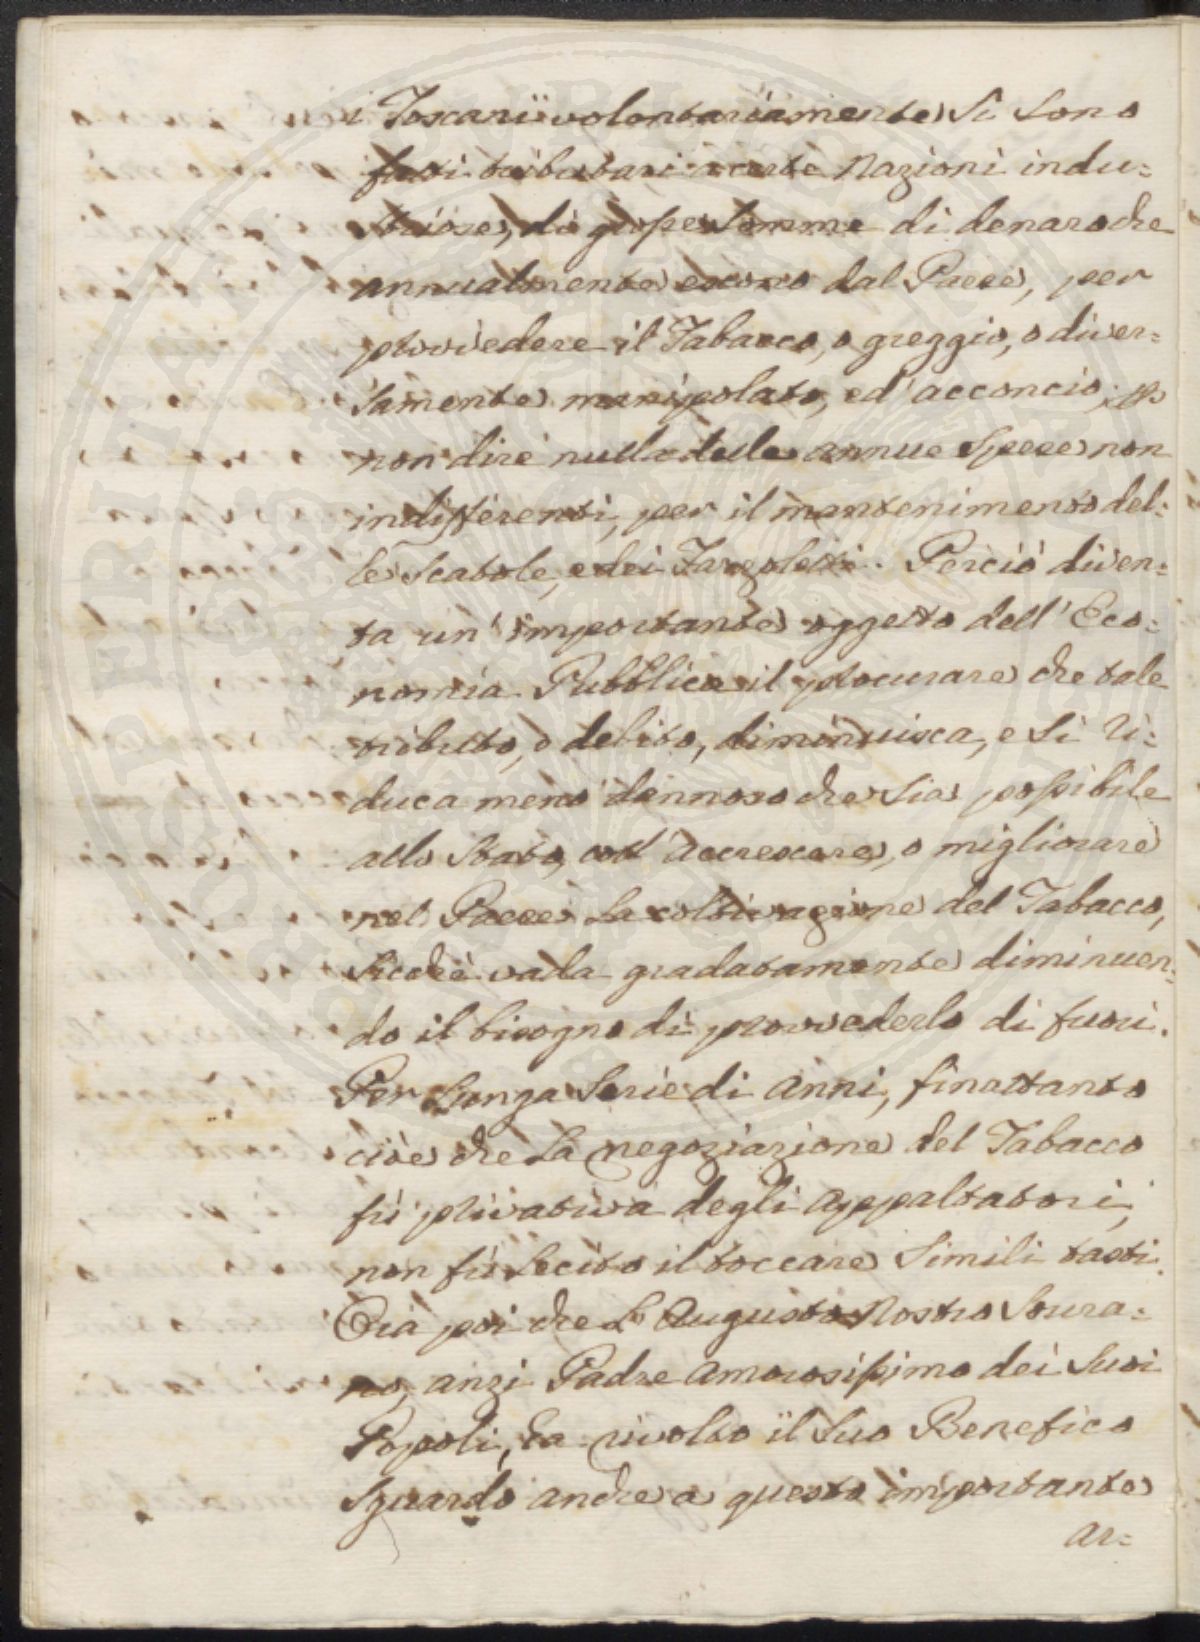 i Toscani volontariamente si sono
fatti tributari a certe Nazioni indu:
striose, di grosse somme di denaro che
annualmente escono dal Paese, per
provvedere il Tabacco, o greggio, o diver:
samente manipolato, ed acconcio; p.
non dire nulla delle annue spese non
indifferenti, per il mantenimento del:
le Scatole, e dei Fazzoletti. Perciò diven:
ta un' importante oggetto dell' Eco:
nomia Pubblica il procurare che tale
tributo, o debito, diminuisca, e si ri:
duca meno dannoso che sia possibile
allo Stato, coll' accrescere, o migliorare
nel Paese la coltivazione del Tabacco,
sicchè vada gradatamente diminuen:
do il bisogno di provvederlo di fuori.
Per lunga serie di anni, finattanto
cioè che la negoziazione del Tabacco
fù privativa degli Appaltatori,
non fù lecito il toccare simili tasti.
Ora poi che l'Augusto Nostro Sovra:
no, anzi Padre amorosissimo dei Suoi
Popoli, ha rivolto il Suo Benefico
Sguardo anche a questo importante
ar:
PROSPERITATI PUBLICAE AUGENDAE